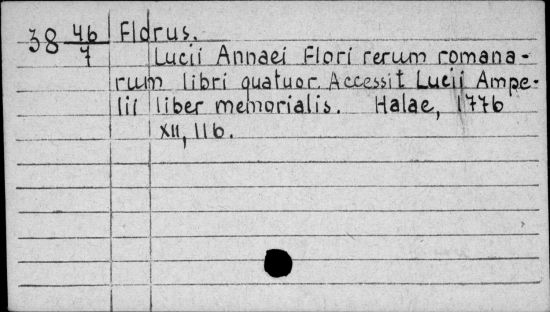 38 46/7 Florus.
Lucii Annaei Flori rerum romana-
rum libri quatuor. Accessit Lucii Ampe-
lii liber memorialis. Halae, 1776
XII, 116.